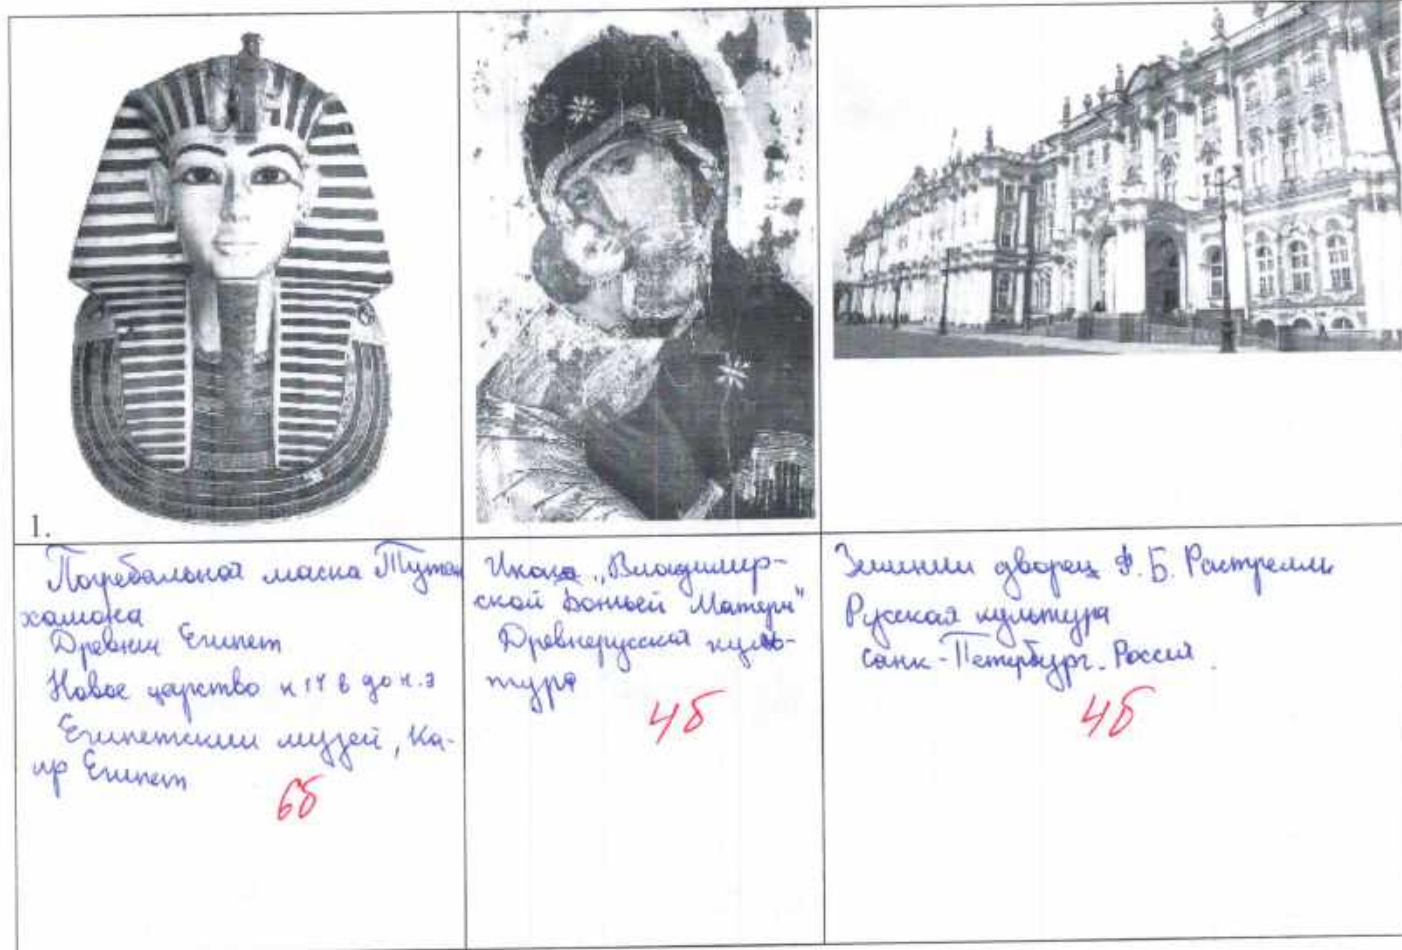 1.
Погребальной маска Тутан
хамона
Древний Египет
Новое царство к 14 в до н.э
Египетский музей, Ка-
ир Египет
6б
Икона „Владимир-
ской Божьей Матери"
Древнерусская куль-
тура
4б
Зимний дворец Ф. Б. Растрелли
Русская культура
Санк-Петербург. Россия.
4б